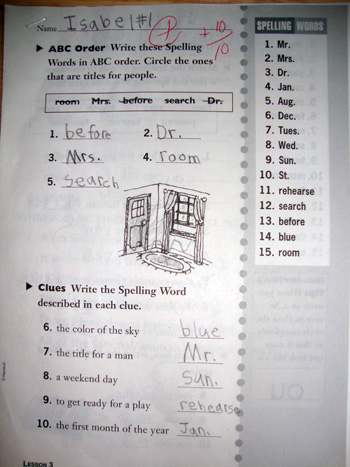 Name Isabel #1
+ 10/10
ABC Order Write these Spelling
Words in ABC order. Circle the ones
that are titles for people.
room Mrs. before search Dr.
1. before 2. Dr.
3. Mrs. 4. room
5. search
Clues Write the Spelling Word
described in each clue.
6. the color of the sky blue
7. the title for a man Mr.
8. a weekend day Sun.
9. to get ready for a play rehearse
10. the first month of the year Jan.
LESSON 3
SPELLING WORDS
1. Mr.
2. Mrs.
3. Dr.
4. Jan.
5. Aug.
6. Dec.
7. Tues.
8. Wed.
9. Sun.
10. St.
11. rehearse
12. search
13. before
14. blue
15. room